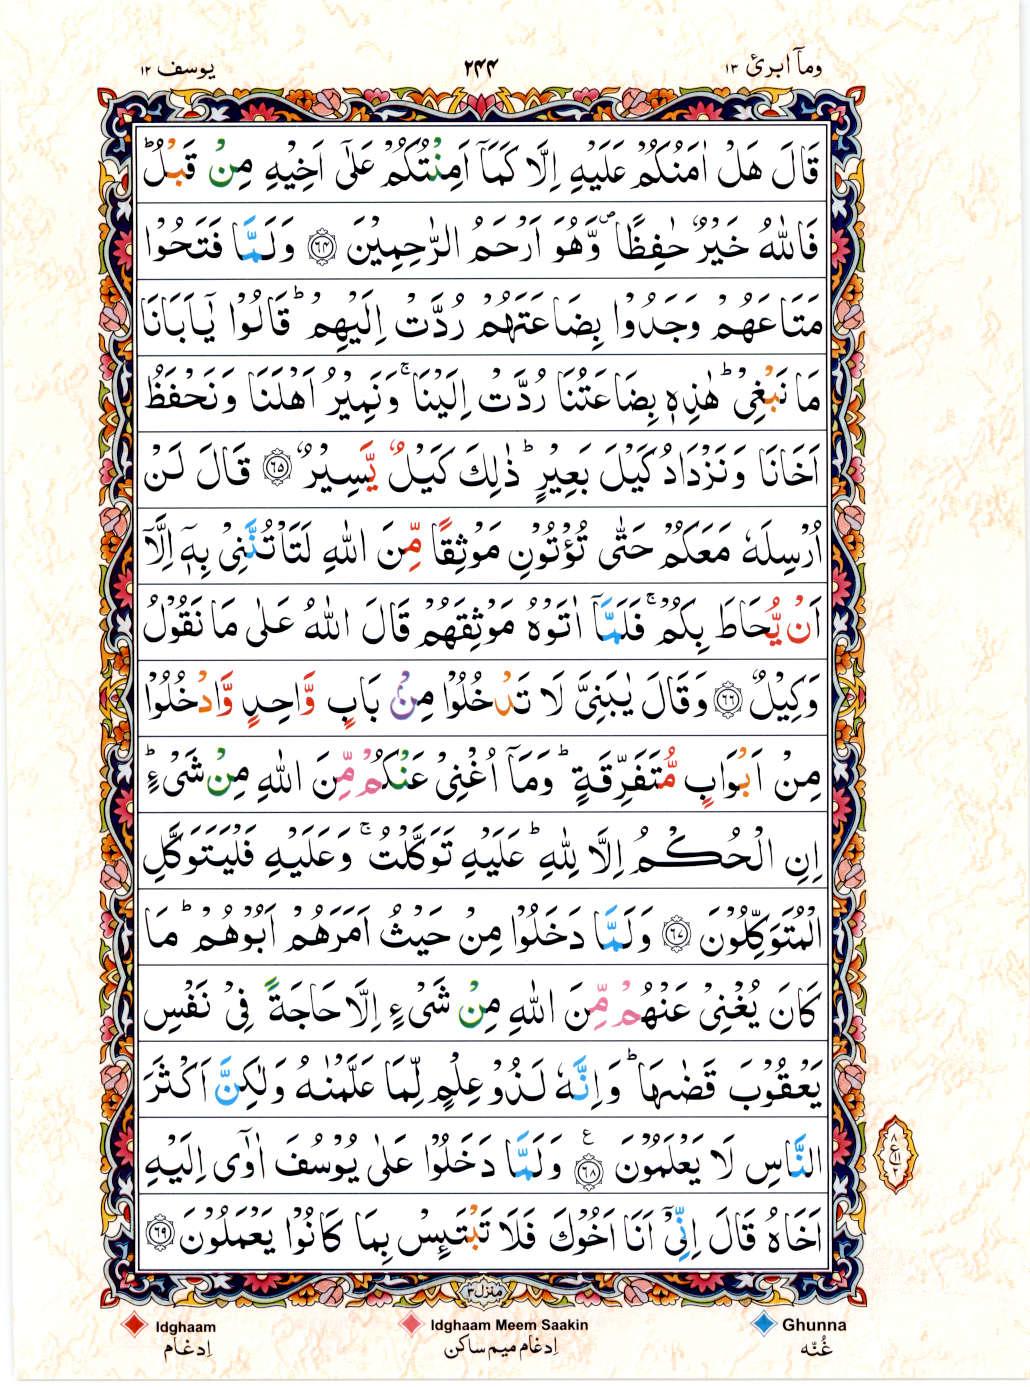 ومآ ابرئ ۱۳
۲۴۴
یوسف ۱۲
قَالَ هَلْ اٰمَنُكُمْ عَلَيْهِ اِلَّا كَمَاۤ اَمِنْتُكُمْ عَلٰۤى اَخِيْهِ مِنْ قَبْلُ ؕ
فَاللّٰهُ خَيْرٌ حٰفِظًا ۪ وَّهُوَ اَرْحَمُ الرّٰحِمِيْنَ ﴿۶۴﴾ وَلَمَّا فَتَحُوْا
مَتَاعَهُمْ وَجَدُوْا بِضَاعَتَهُمْ رُدَّتْ اِلَيْهِمْ ؕ قَالُوْا يٰۤاَبَانَا
مَا نَبْغِىْ ؕ هٰذِهٖ بِضَاعَتُنَا رُدَّتْ اِلَيْنَا ۚ وَنَمِيْرُ اَهْلَنَا وَنَحْفَظُ
اَخَانَا وَنَزْدَادُ كَيْلَ بَعِيْرٍ ؕ ذٰلِكَ كَيْلٌ يَّسِيْرٌ ﴿۶۵﴾ قَالَ لَنْ
اُرْسِلَهٗ مَعَكُمْ حَتّٰى تُؤْتُوْنِ مَوْثِقًا مِّنَ اللّٰهِ لَتَاْتُنَّنِىْ بِهٖۤ اِلَّاۤ
اَنْ يُّحَاطَ بِكُمْ ۚ فَلَمَّاۤ اٰتَوْهُ مَوْثِقَهُمْ قَالَ اللّٰهُ عَلٰى مَا نَقُوْلُ
وَكِيْلٌ ﴿۶۶﴾ وَقَالَ يٰبَنِىَّ لَا تَدْخُلُوْا مِنْۢ بَابٍ وَّاحِدٍ وَّادْخُلُوْا
مِنْ اَبْوَابٍ مُّتَفَرِّقَةٍ ؕ وَمَاۤ اُغْنِىْ عَنْكُمْ مِّنَ اللّٰهِ مِنْ شَىْءٍ ؕ
اِنِ الْحُكْمُ اِلَّا لِلّٰهِ ؕ عَلَيْهِ تَوَكَّلْتُ ۚ وَعَلَيْهِ فَلْيَتَوَكَّلِ
الْمُتَوَكِّلُوْنَ ﴿۶۷﴾ وَلَمَّا دَخَلُوْا مِنْ حَيْثُ اَمَرَهُمْ اَبُوْهُمْ ؕ مَا
كَانَ يُغْنِىْ عَنْهُمْ مِّنَ اللّٰهِ مِنْ شَىْءٍ اِلَّا حَاجَةً فِىْ نَفْسِ
يَعْقُوْبَ قَضٰىهَا ؕ وَاِنَّهٗ لَذُوْ عِلْمٍ لِّمَا عَلَّمْنٰهُ وَلٰكِنَّ اَكْثَرَ
النَّاسِ لَا يَعْلَمُوْنَ ﴿۶۸﴾ ع وَلَمَّا دَخَلُوْا عَلٰى يُوْسُفَ اٰوٰۤى اِلَيْهِ
اَخَاهُ قَالَ اِنِّىْۤ اَنَا اَخُوْكَ فَلَا تَبْتَئِسْ بِمَا كَانُوْا يَعْمَلُوْنَ ﴿۶۹﴾
منزل۳
Ghunna
غُنّه
Idghaam Meem Saakin
اِدغام میم ساکن
Idghaam
اِدغام